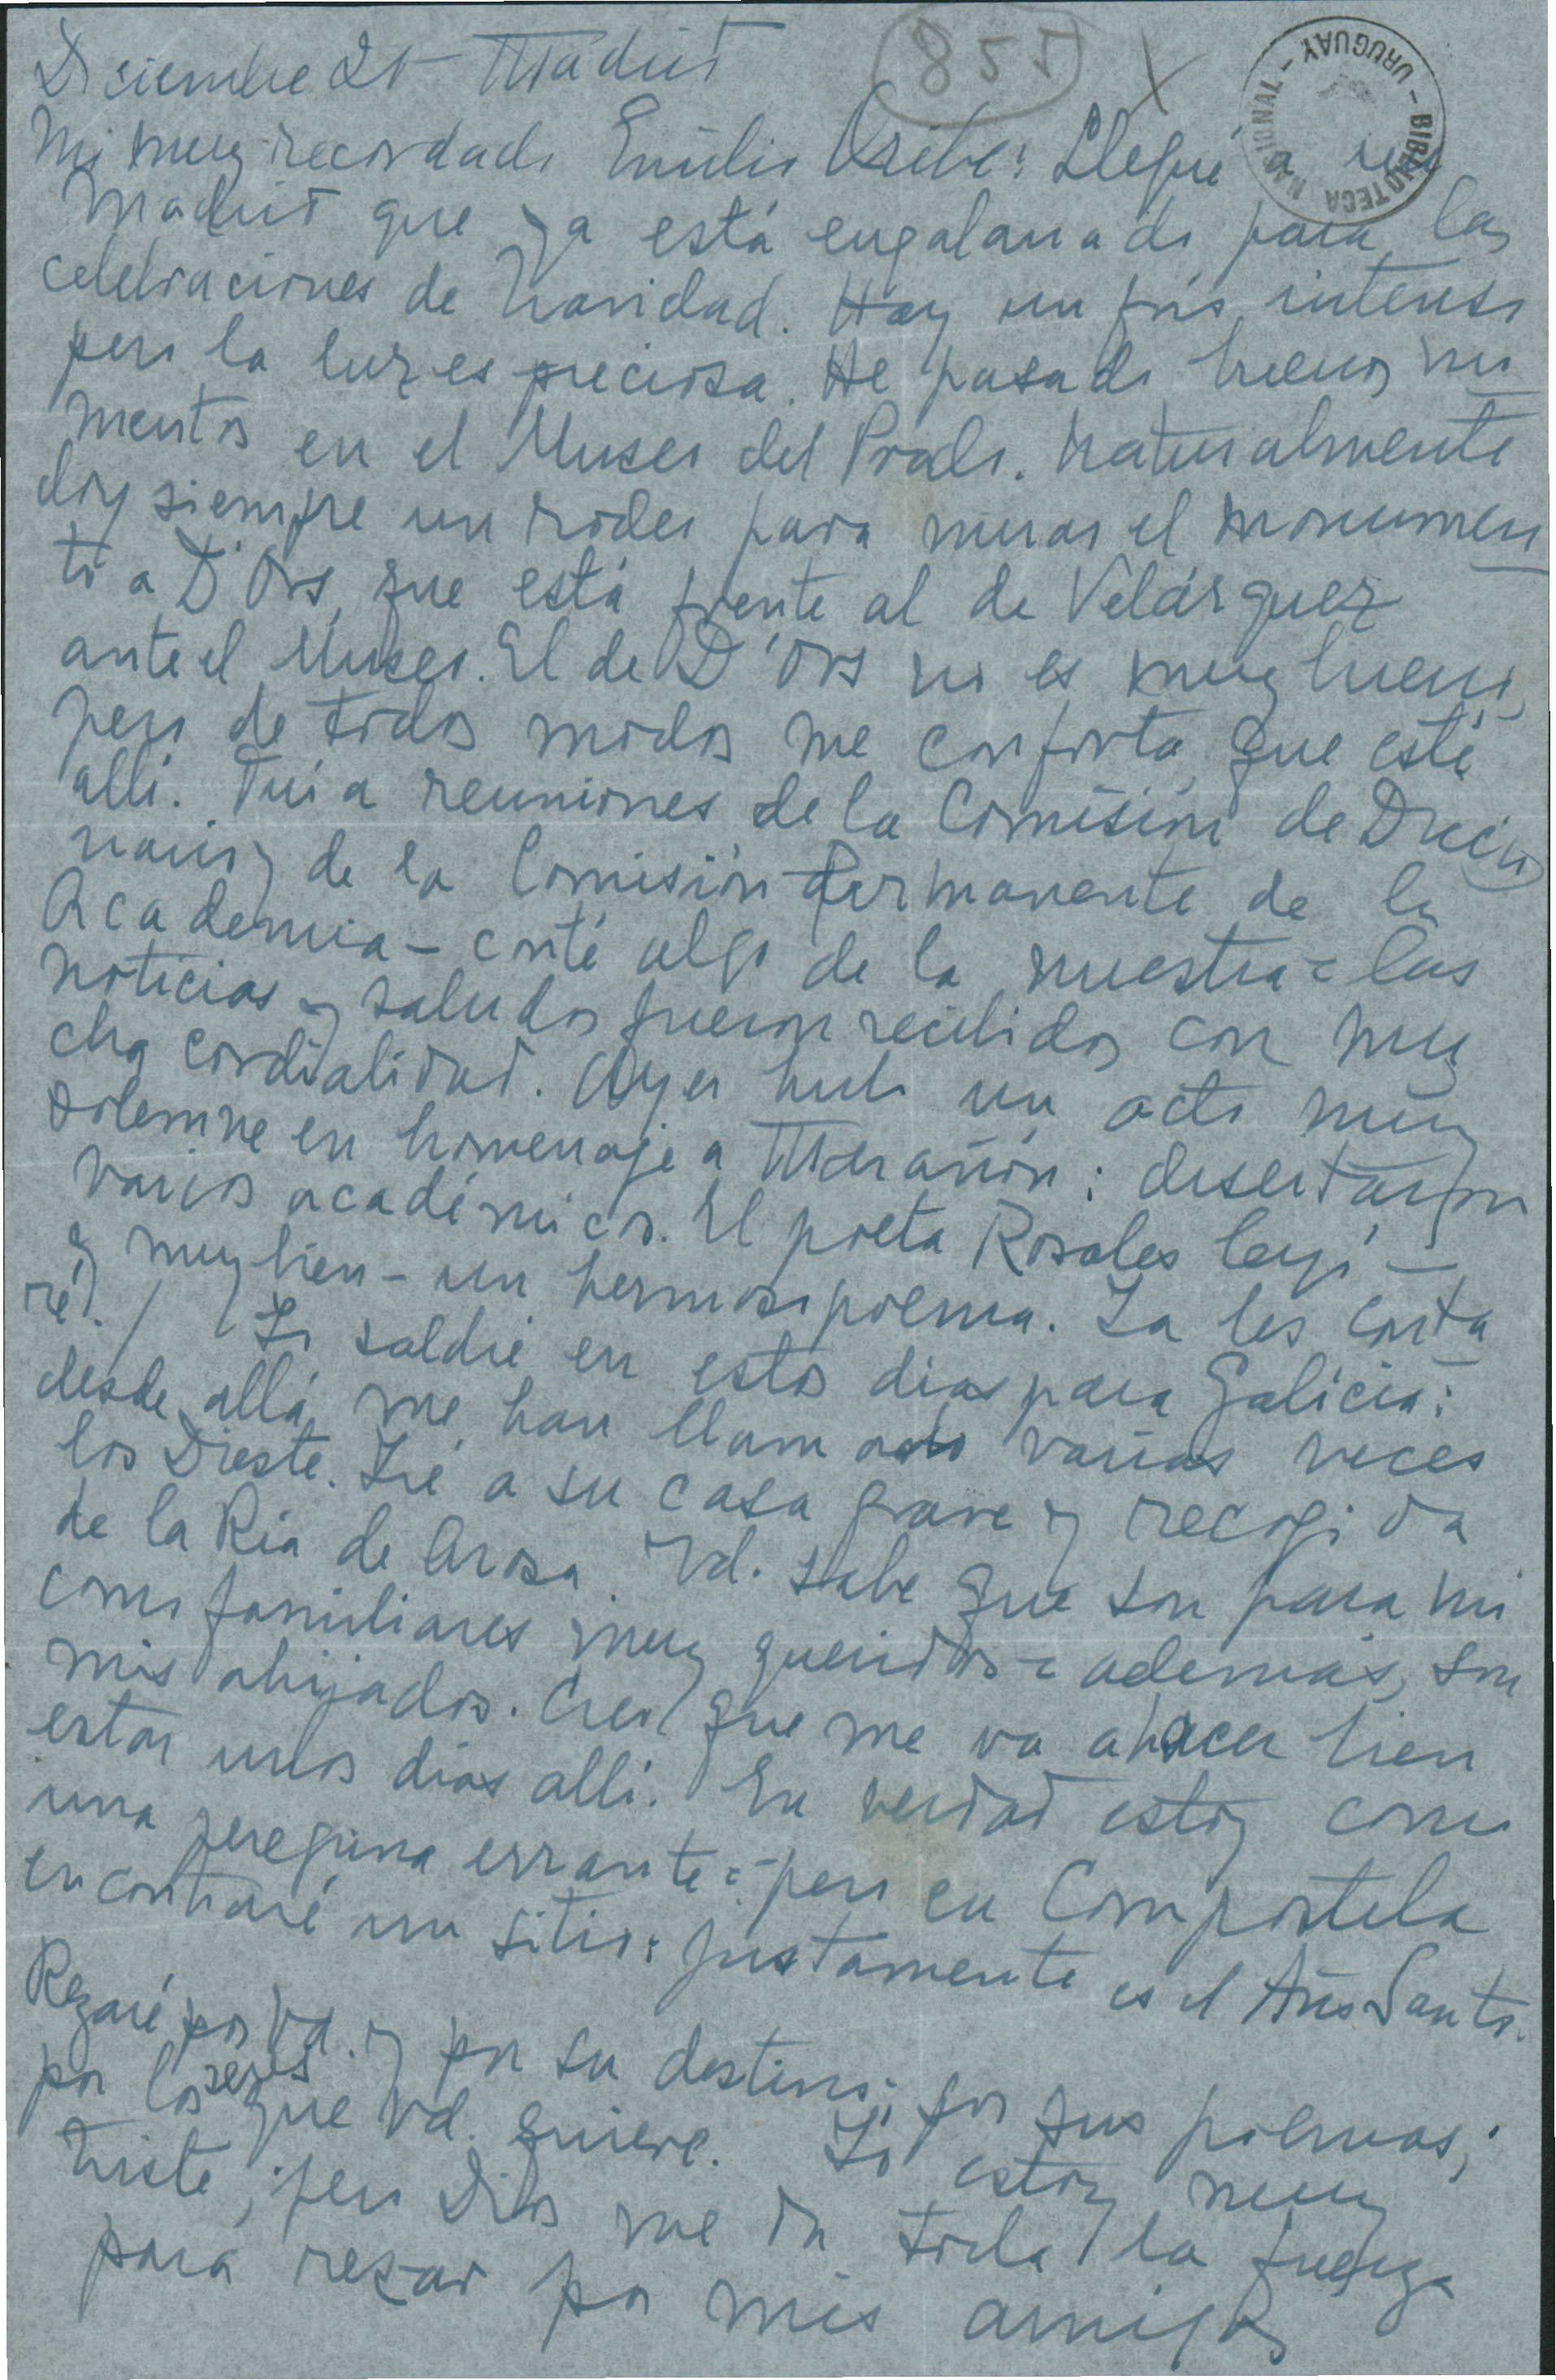 Diciembre 20 - Madrid
857 X
BIBLIOTECA NACIONAL - URUGUAY -
Mi muy recordado Emilio Oribe: Llegué a un
Madrid que ya está engalanado para las
celebraciones de Navidad. Hay un frío intenso
pero la luz es preciosa. He pasado buenos mo
mentos en el Museo del Prado. Naturalmente
doy siempre un rodeo para mirar el monumen
to a D'Ors, que está frente al de Velázquez
ante el Museo. El de D'Ors no es muy bueno,
pero de todos modos me conforta que esté
allí. Fui a reuniones de la Comisión de Diccio
nario y de la Comisión Permanente de la
Academia - conté algo de la nuestra = las
noticias y saludos fueron recibidos con mu
cha cordialidad. Ayer hubo un acto muy
solemne en homenaje a Marañón: disertaron
varios académicos. El poeta Rosales leyó -
y muy bien - un hermoso poema. Ya les conta
ré. / Yo saldré en estos días para Galicia:
desde allá me han llamado varias veces
los Dieste. Iré a su casa grave y recogida
de la Ría de Arosa. Vd. sabe que son para mi
como familiares muy queridos = además, son
mis ahijados. Creo que me va a hacer bien
estar unos días allí. En verdad estoy como
una peregrina errante = pero en Compostela
encontraré un sitio: justamente es el Año Santo.
Rezaré por Vd. y por su destino; por sus poemas;
por los seres que Vd. quiere. Yo estoy muy
triste; pero Dios me da toda la fuerza
para rezar por mis amigos